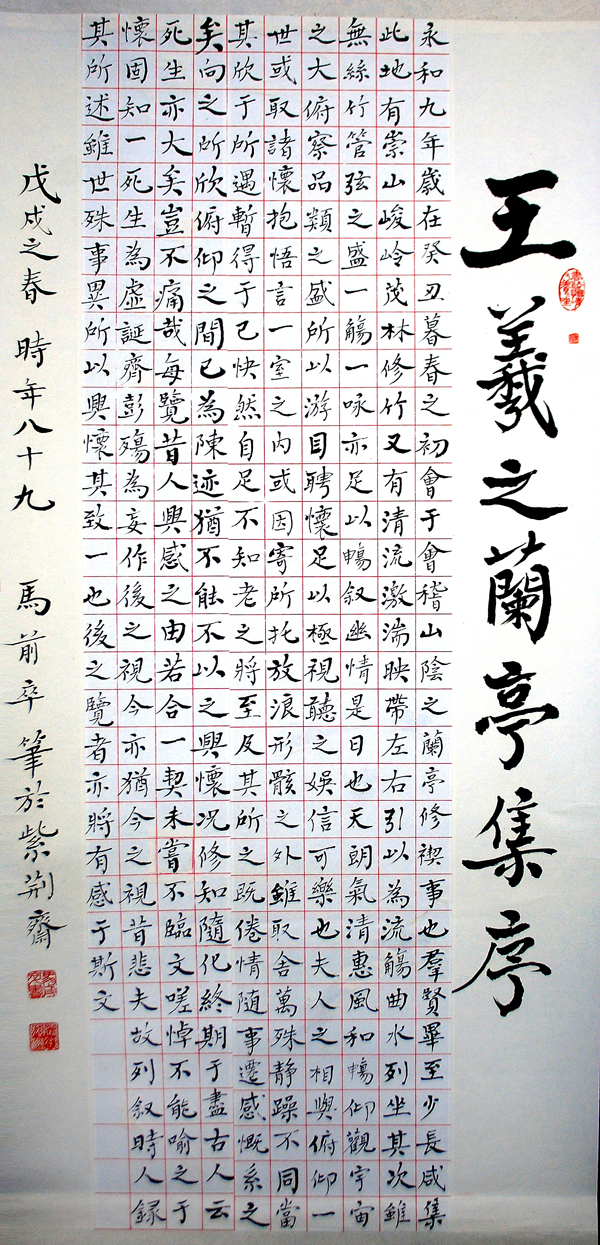 王羲之蘭亭集序
永和九年歲在癸丑暮春之初會于會稽山陰之蘭亭修禊事也羣賢畢至少長咸集
此地有崇山峻岭茂林修竹又有清流激湍映帶左右引以為流觴曲水列坐其次雖
無絲竹管弦之盛一觴一咏亦足以暢叙幽情是日也天朗氣清惠風和暢仰觀宇宙
之大俯察品類之盛所以游目聘懷足以極視聽之娛信可樂也夫人之相與俯仰一
世或取諸懷抱悟言一室之內或因寄所托放浪形骸之外雖取舍萬殊静躁不同當
其欣于所遇暫得于己快然自足不知老之將至及其所之既倦情随事遷感慨系之
矣向之所欣俯仰之間已為陳迹猶不能不以之興懷况修知隨化終期于盡古人云
死生亦大矣豈不痛哉每覽昔人興感之由若合一契未嘗不臨文嗟悼不能喻之于
懷固知一死生為虛誕齊彭殤為妄作後之視今亦猶今之視昔悲夫故列叙時人錄
其所述雖世殊事異所以興懷其致一也後之覽者亦將有感于斯文
戊戌之春 時年八十九 馬前卒筆於紫荆齋